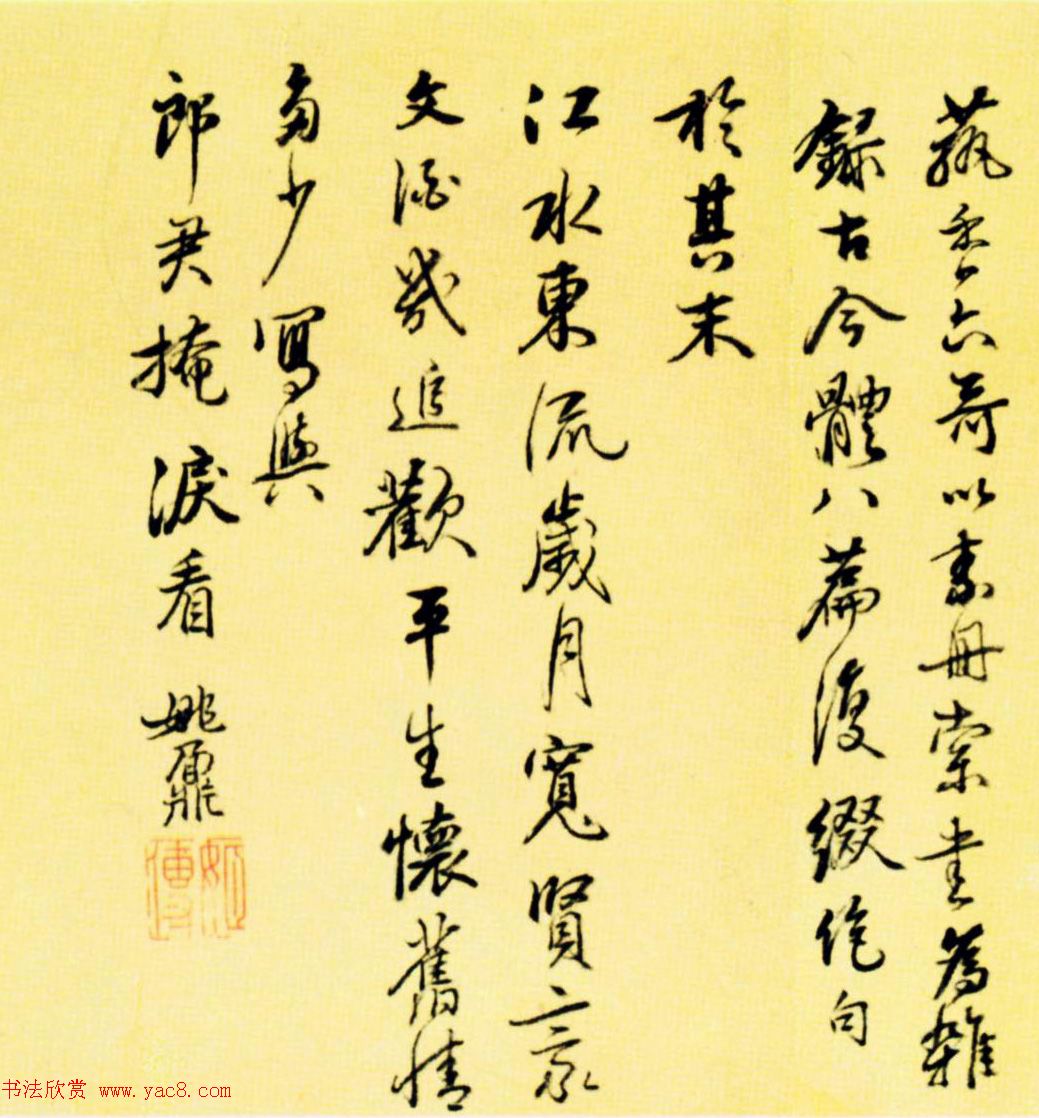 蓺香六哥以素冊索書為雜
錄古今體八篇復綴絕句
於其末
江水東流歲月寬賢豪
文酒幾追歡平生懷舊情
多少寫與
郎君掩淚看 姚鼐
姬傳
书法欣赏 www.yac8.com